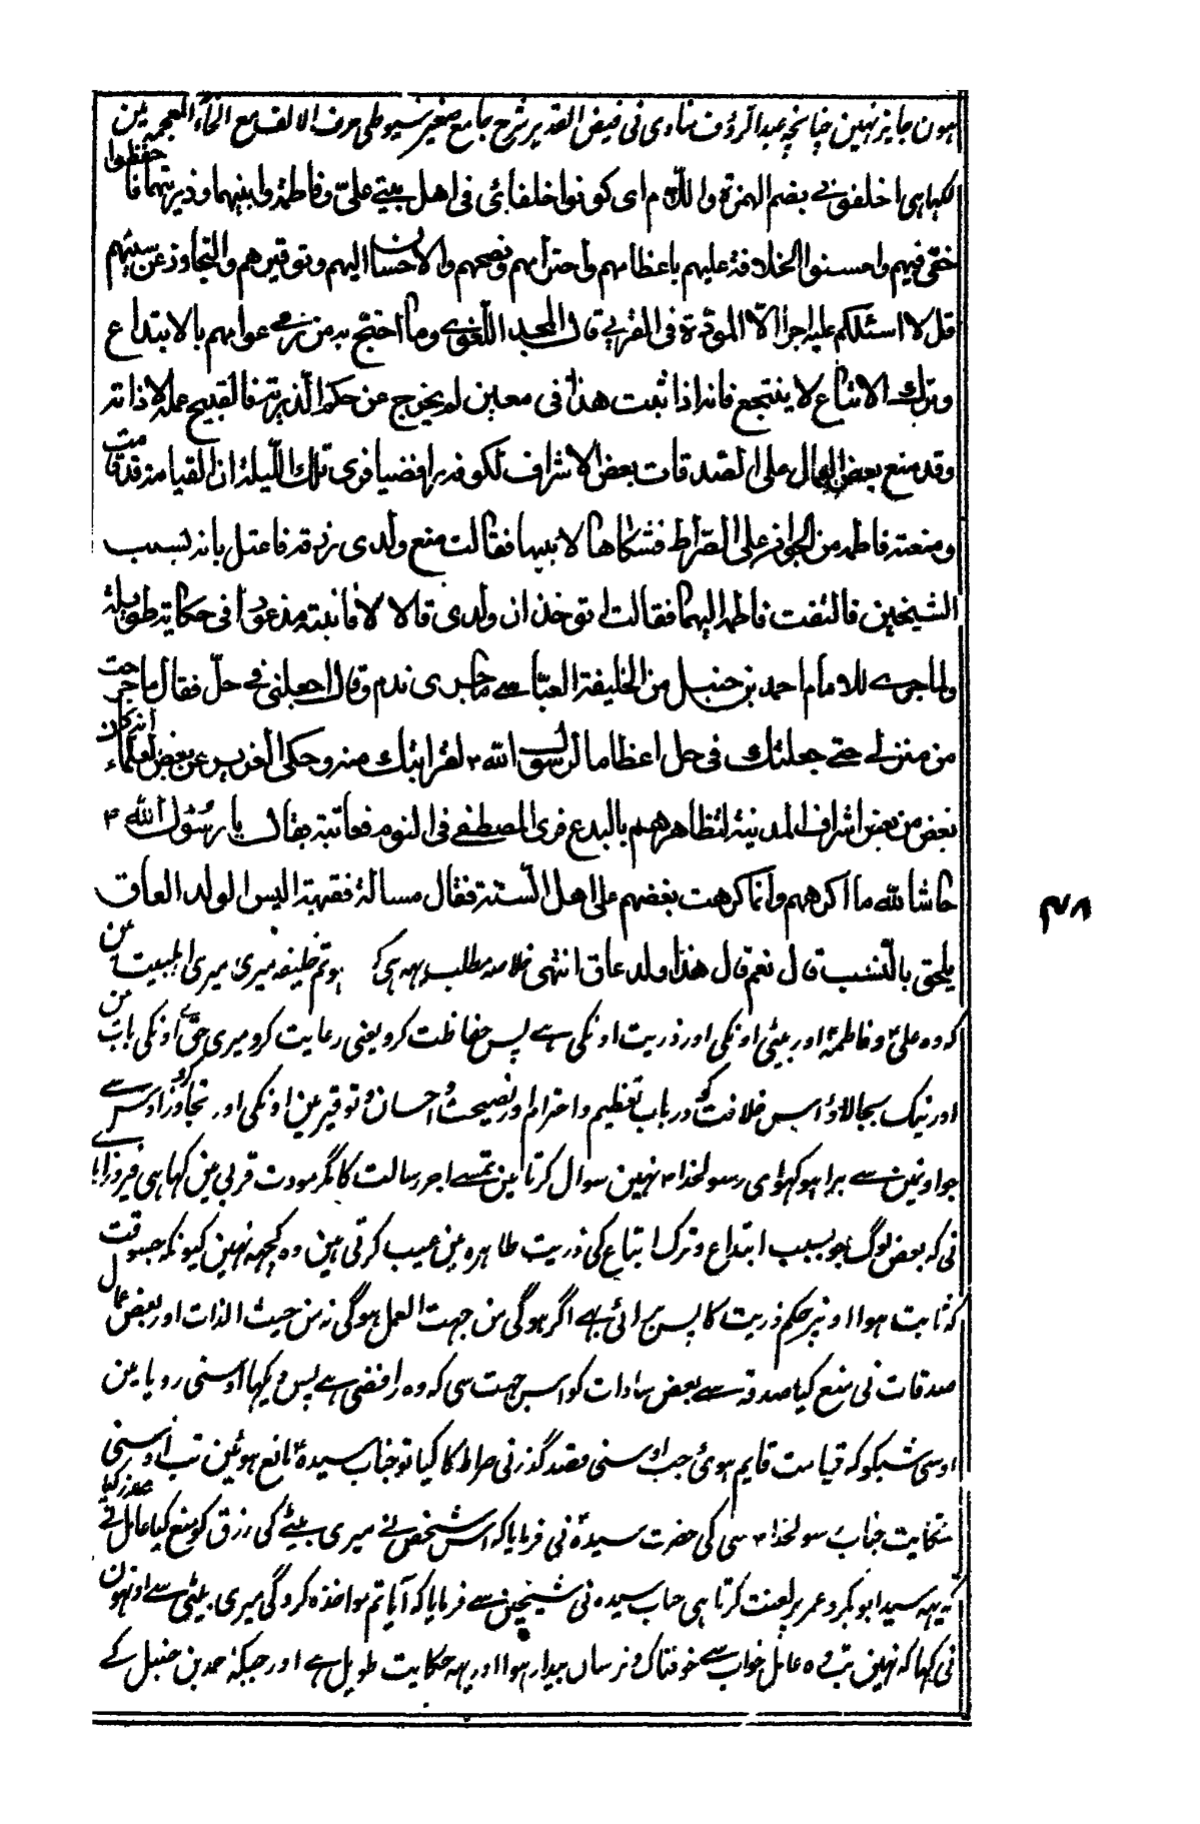 ہون جایز نہین چنانچہ عبدالرؤف مناوی نی فیض القدیر شرح جامع صغیر سیوطی حرف الالف مع الخاء المعجمہ مین
لکہا ہی اخلفونی بضم الهمزة واللام ای کونوا خلفائی فی اهل بیتی علیّ وفاطمة وابنیهما وذریتهما فاحفظوا
حقی فیهم واحسنوا الخلافة علیهم باعظامهم واحترامهم ونصحهم والاحسان الیهم وتوقیرهم والتجاوز عن سیئهم
قل لا اسئلکم علیه اجرا الّا المودّة فی القربی قال المجد اللّغوی وما احتج به من رمی عوامهم بالابتداع
وترک الاتباع لا ینتجع فانه اذا ثبت هذا فی معین لم یخرج عن حکم الذریّة فالقبیح عمله لا ذاته
وقد منع بعض العمال علی الصّدقات بعض الاشراف لکونه رافضیا فری تلک اللّیلة ان القیامة قد قامت
ومنعته فاطمه من الجواز علی الصّراط فشکاها لابیها فقالت منع ولدی رزقه فاعتل بانه یسب
الشیخین فالتفت فاطمه الیهما فقالت اتوخذان ولدی قالا لا فانتبه مذعورا فی حکایة طویلة
ولما جری للامام احمد بن حنبل من الخلیفة العبّاسی ما جری ندم وقال اجعلنی فی حلّ فقال ما خرجت
من منزلی حتی جعلتک فی حل اعظاما لرسول الله ۲ لقرابتک منه وحکی المقریزی عن بعض العلماء انه کان
یبغض من بعض اشراف المدینة لتظاهرهم بالبدع فری المصطفی فی النوم فعاتبه فقال یا رسول الله ۲
حاشا لله ما اکرههم وانما کرهت بغضهم علی اهل السّنة فقال مسالة فقهیة الیس الولد العاق
یلحق بالنّسب قال نعم قال هذا ولد عاق انتهی خلاصہ مطلب یہہ ہی کہ ہو تم خلیفہ میری میری اہلبیت مین
کہ وہ علیؑ و فاطمہؑ اور بیٹی اونکی اور ذریت اونکی ہے پس حفاظت کرو یعنی رعایت کرو میری حق کی اونکی باب مین
اور نیک بجالاؤ اس خلافت کو در باب تعظیم و احترام اور نصیحت و احسان و توقیر مین اونکی اور تجاوز کرو اوس سے
جو اونمین سے برا ہو کہو ای رسولخدا ۲ نہین سوال کرتا مین تمسے اجر رسالت کا مگر مودت قربی مین کہا ہی فیروزابادی
نی کہ بعض لوگ جو بسبب ابتداع و ترک اتباع کی ذریت طاہرہ مین عیب کرتی ہین وہ کچہہ نہین کیونکہ جسوقت
کہ ثابت ہوا اونپر حکم ذریت کا پس برائی ہے اگر ہوگی من جہت العمل ہوگی نہ من حیث الذات اور بعض عمال
صدقات نی منع کیا صدقہ سے بعض سادات کو اس جہت سی کہ وہ رافضی ہے پس دیکہا اوسنی رویا مین
اوسی شبکو کہ قیامت قایم ہوئی جب اوسنی قصد گذرنی صراط کا کیا تو جناب سیدہ مانع ہوئین تب اوسنی
شکایت جناب رسولخدا ۲ سی کی حضرت سیدہ نی فرمایا کہ اس شخص نے میری بیٹے کی رزق کو منع کیا عامل نے عذر کیا
کہ یہہ سید ابوبکر و عمر پر لعنت کرتا ہی جناب سیدہ نی شیخین سے فرمایا کہ آیا تم مواخذہ کروگی میری بیٹی سے اونہون
نی کہا کہ نہین تب وہ عامل خواب سے خوفناک و ترساں بیدار ہوا اور یہہ حکایت طویل ہے اور جبکہ احمد بن حنبل کے
۴۸